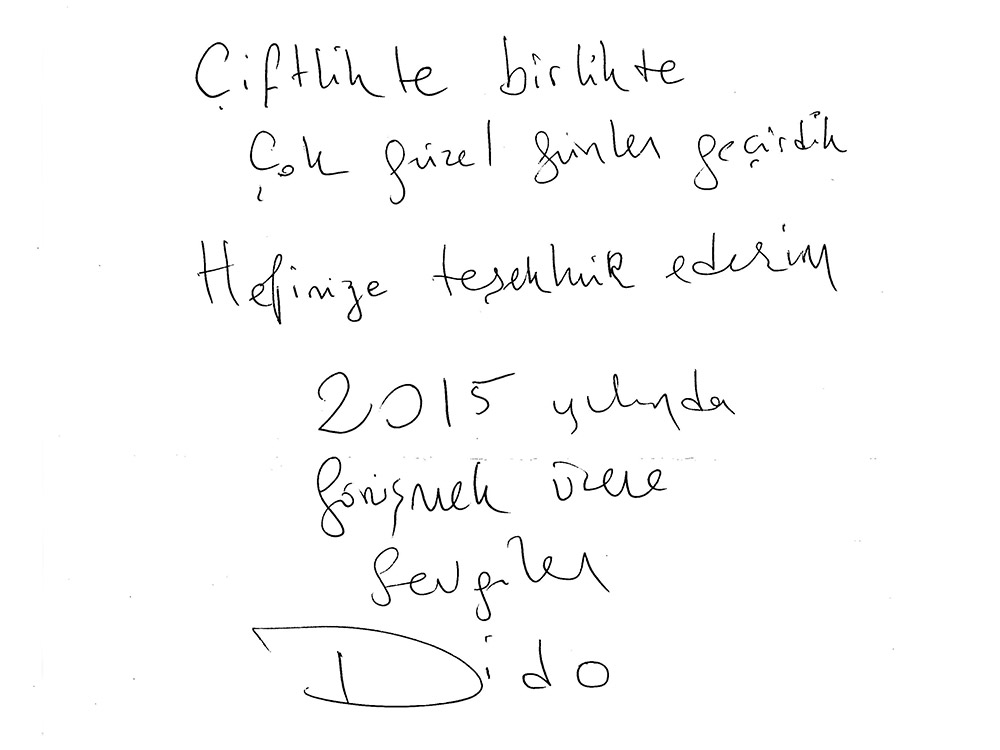 Çiftlikte birlikte
Çok güzel günler geçirdik
Hepinize teşekkür ederim
2015 yılında
görüşmek üzere
Sevgiler
Dido